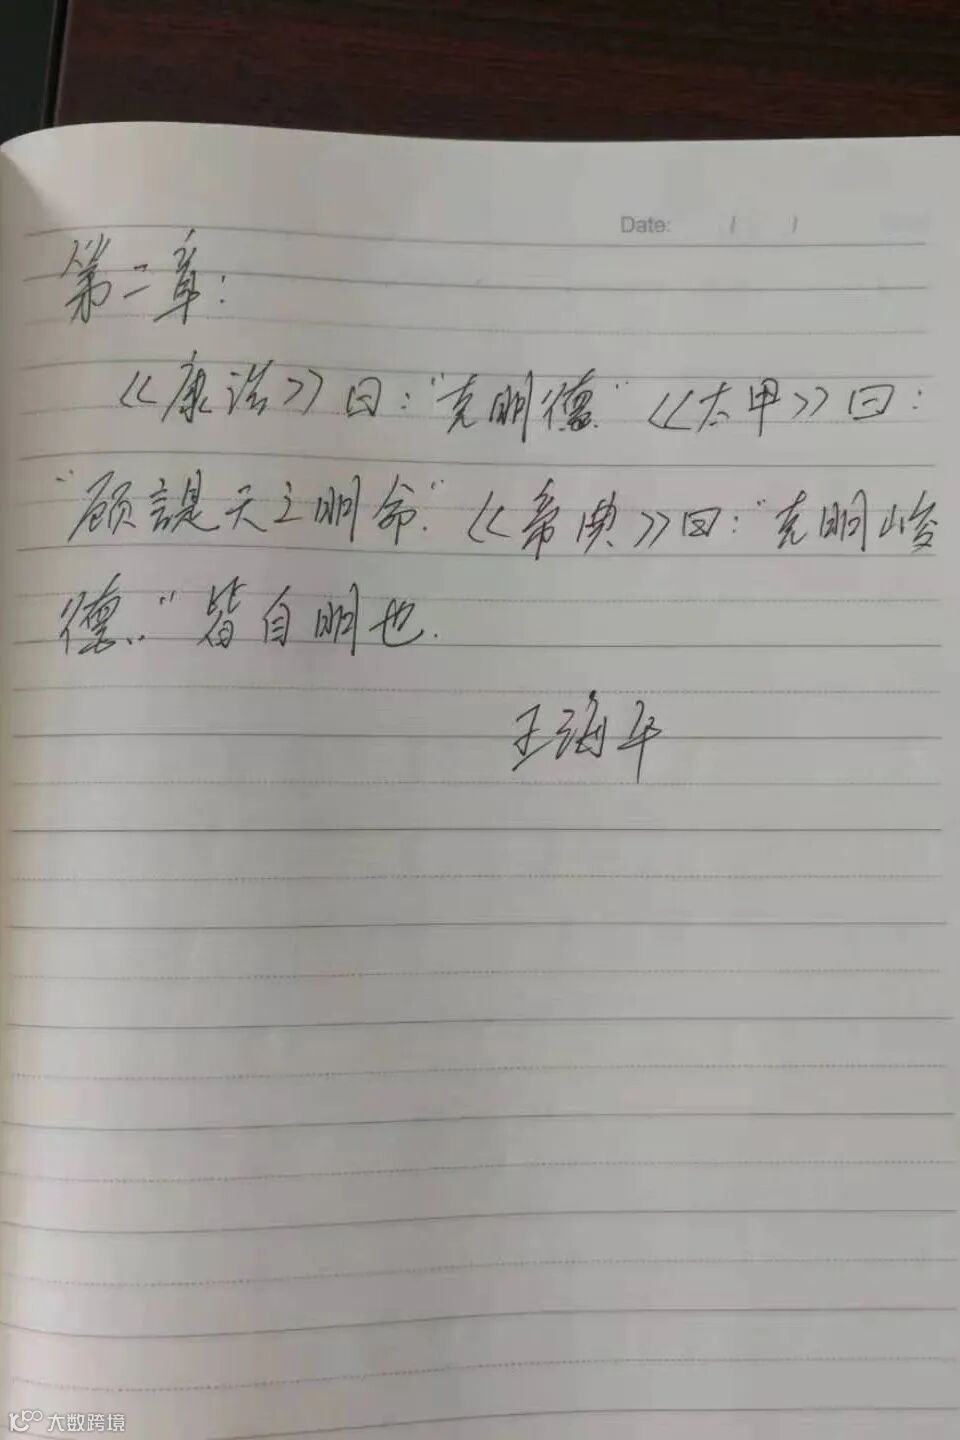 Date: / /
第二章:
《康诰》曰:"克明德"《太甲》曰:
"顾諟天之明命."《帝典》曰:"克明峻
德."皆自明也.
王海平
大数跨境